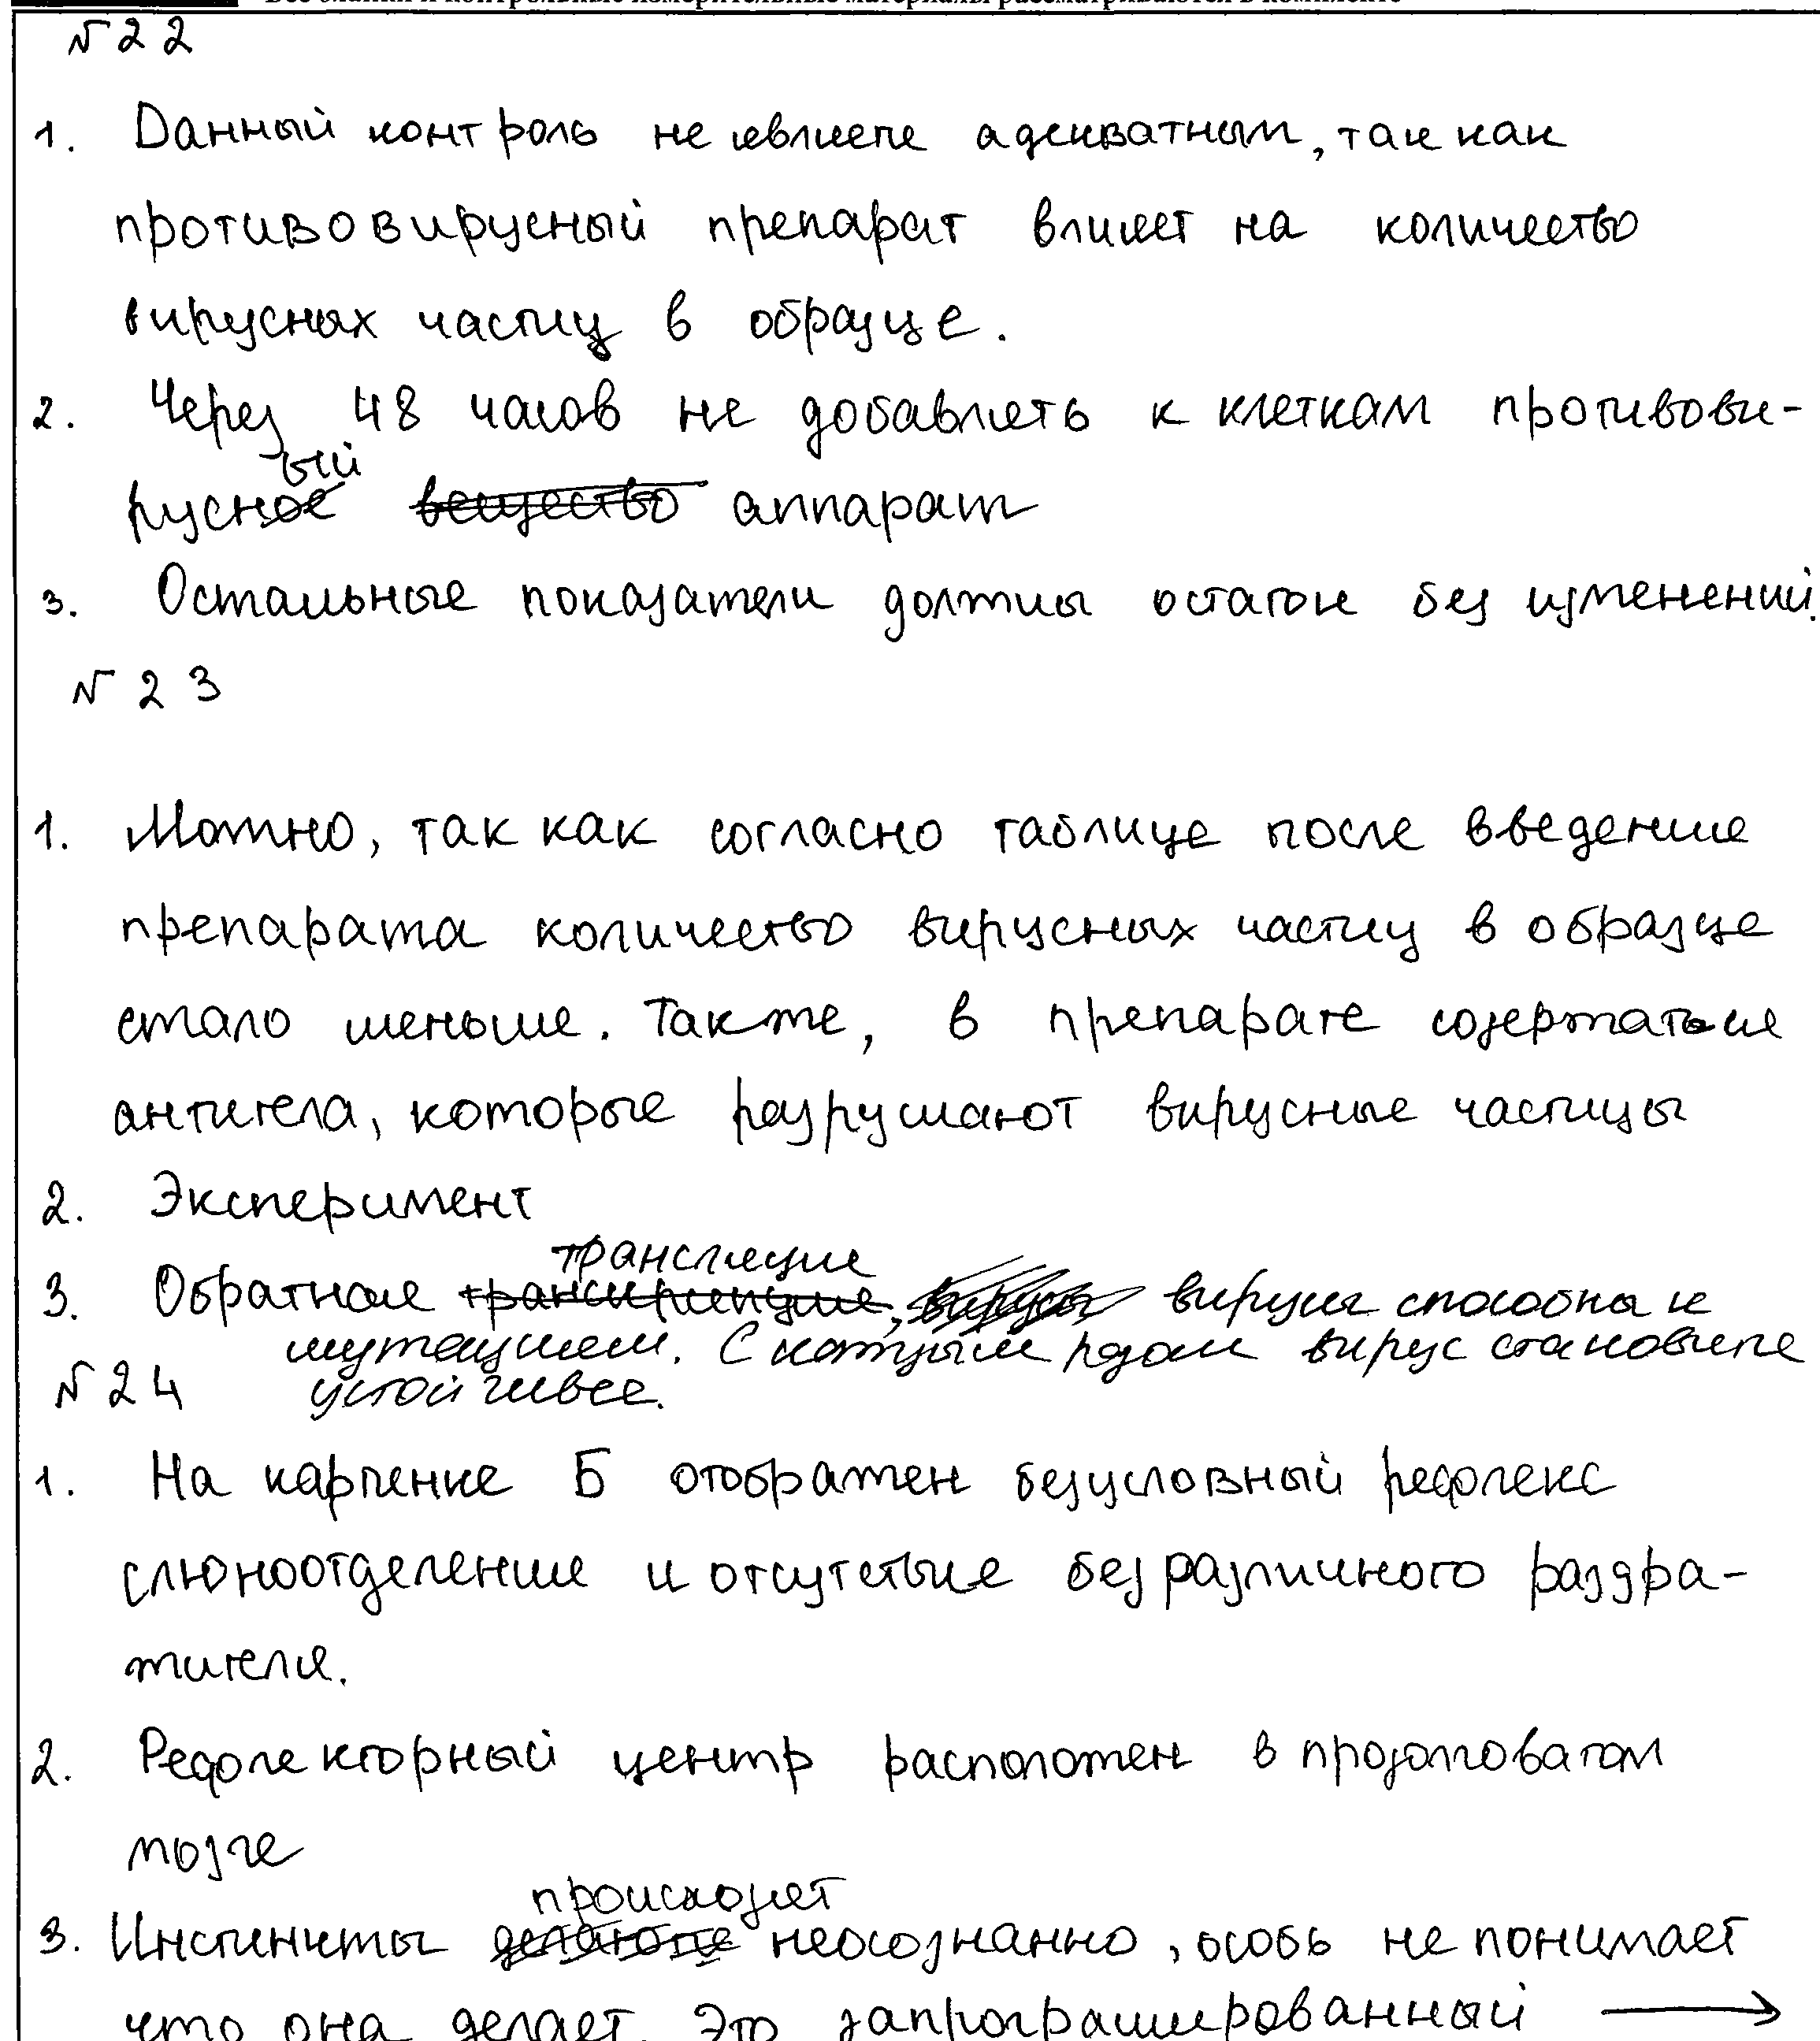 Все бланки и контрольные измерительные материалы рассматриваются в комплекте
№22
1. Данный контроль не является адекватным, так как
противовирусный препарат влияет на количество
вирусных частиц в образце.
2. Через 48 часов не добавлять к клеткам противови-
русный вещество аппарат
3. Остальные показатели должны остаться без изменений.
№23
1. Можно, так как согласно таблице после введения
препарата количество вирусных частиц в образце
стало меньше. Также, в препарате содержаться
антитела, которые разрушают вирусные частицы
2. Эксперимент
трансляция
3. Обратная транскрипция, вирусы вируся способна к
мутациям. С каждым разом вирус становится
№24 устойчивее.
1. На картинке Б отображен безусловный рефлекс
слюноотделения и отсутствие безразличного раздра-
жителя.
2. Рефлекторный центр расположен в продолговатом
мозге
происходят
3. Инстинкты делаются неосознанно, особь не понимает
что она делает. Это запрограммированный →